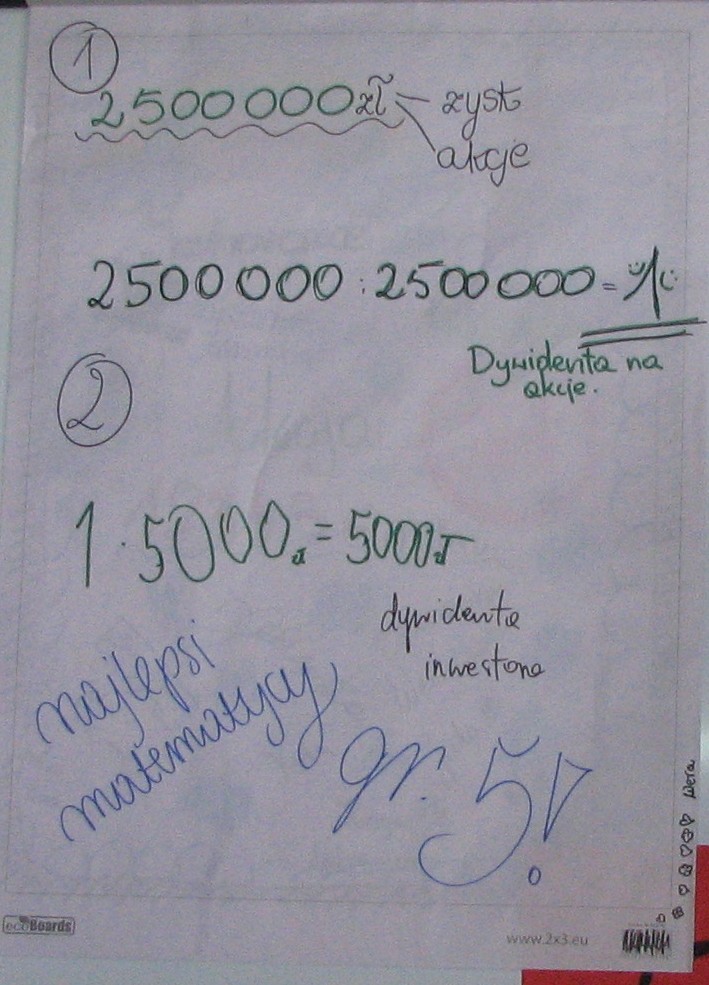 1
2500000zł zysk
akcje
2500000 : 2500000 = 1
Dywidenta na
akcje.
2
1 · 5000 zł = 5000 zł
dywidenta
inwestora
najlepsi
matematycy
gr. 5!
Wera
ecoBoards
www.2x3.eu